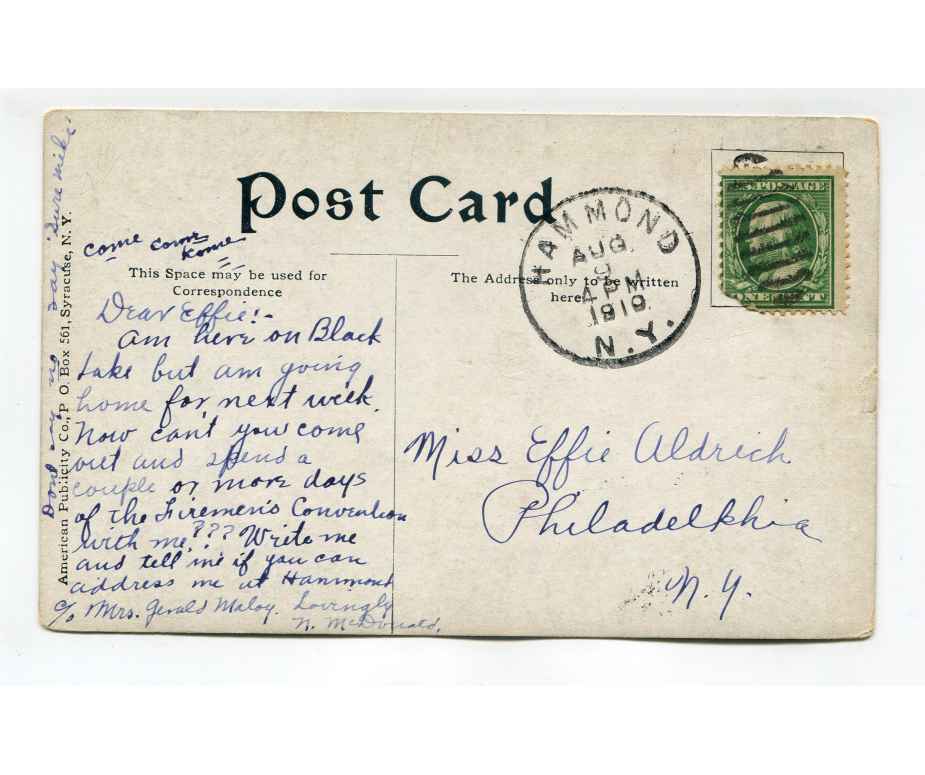 Post Card
come come
Kome
This Space may be used for
Correspondence
The Address only to be written
here
HAMMOND
AUG.
9
4 PM
1910
N.Y.
ONE CENT
Dear Effie!-
Am here on Black
Lake but am going
home for next week.
Now can't you come
out and spend a
couple or more days
of the Firemen's Convention
with me??? Write me
and tell me if you can
address me at Hammond
c/o Mrs. Gerald Maloy. Lovingly
N. McDonald.
Don't say no say "sure mike"
American Publicity Co., P. O. Box 561, Syracuse, N. Y.
Miss Effie Aldrich
Philadelkhia
N.Y.